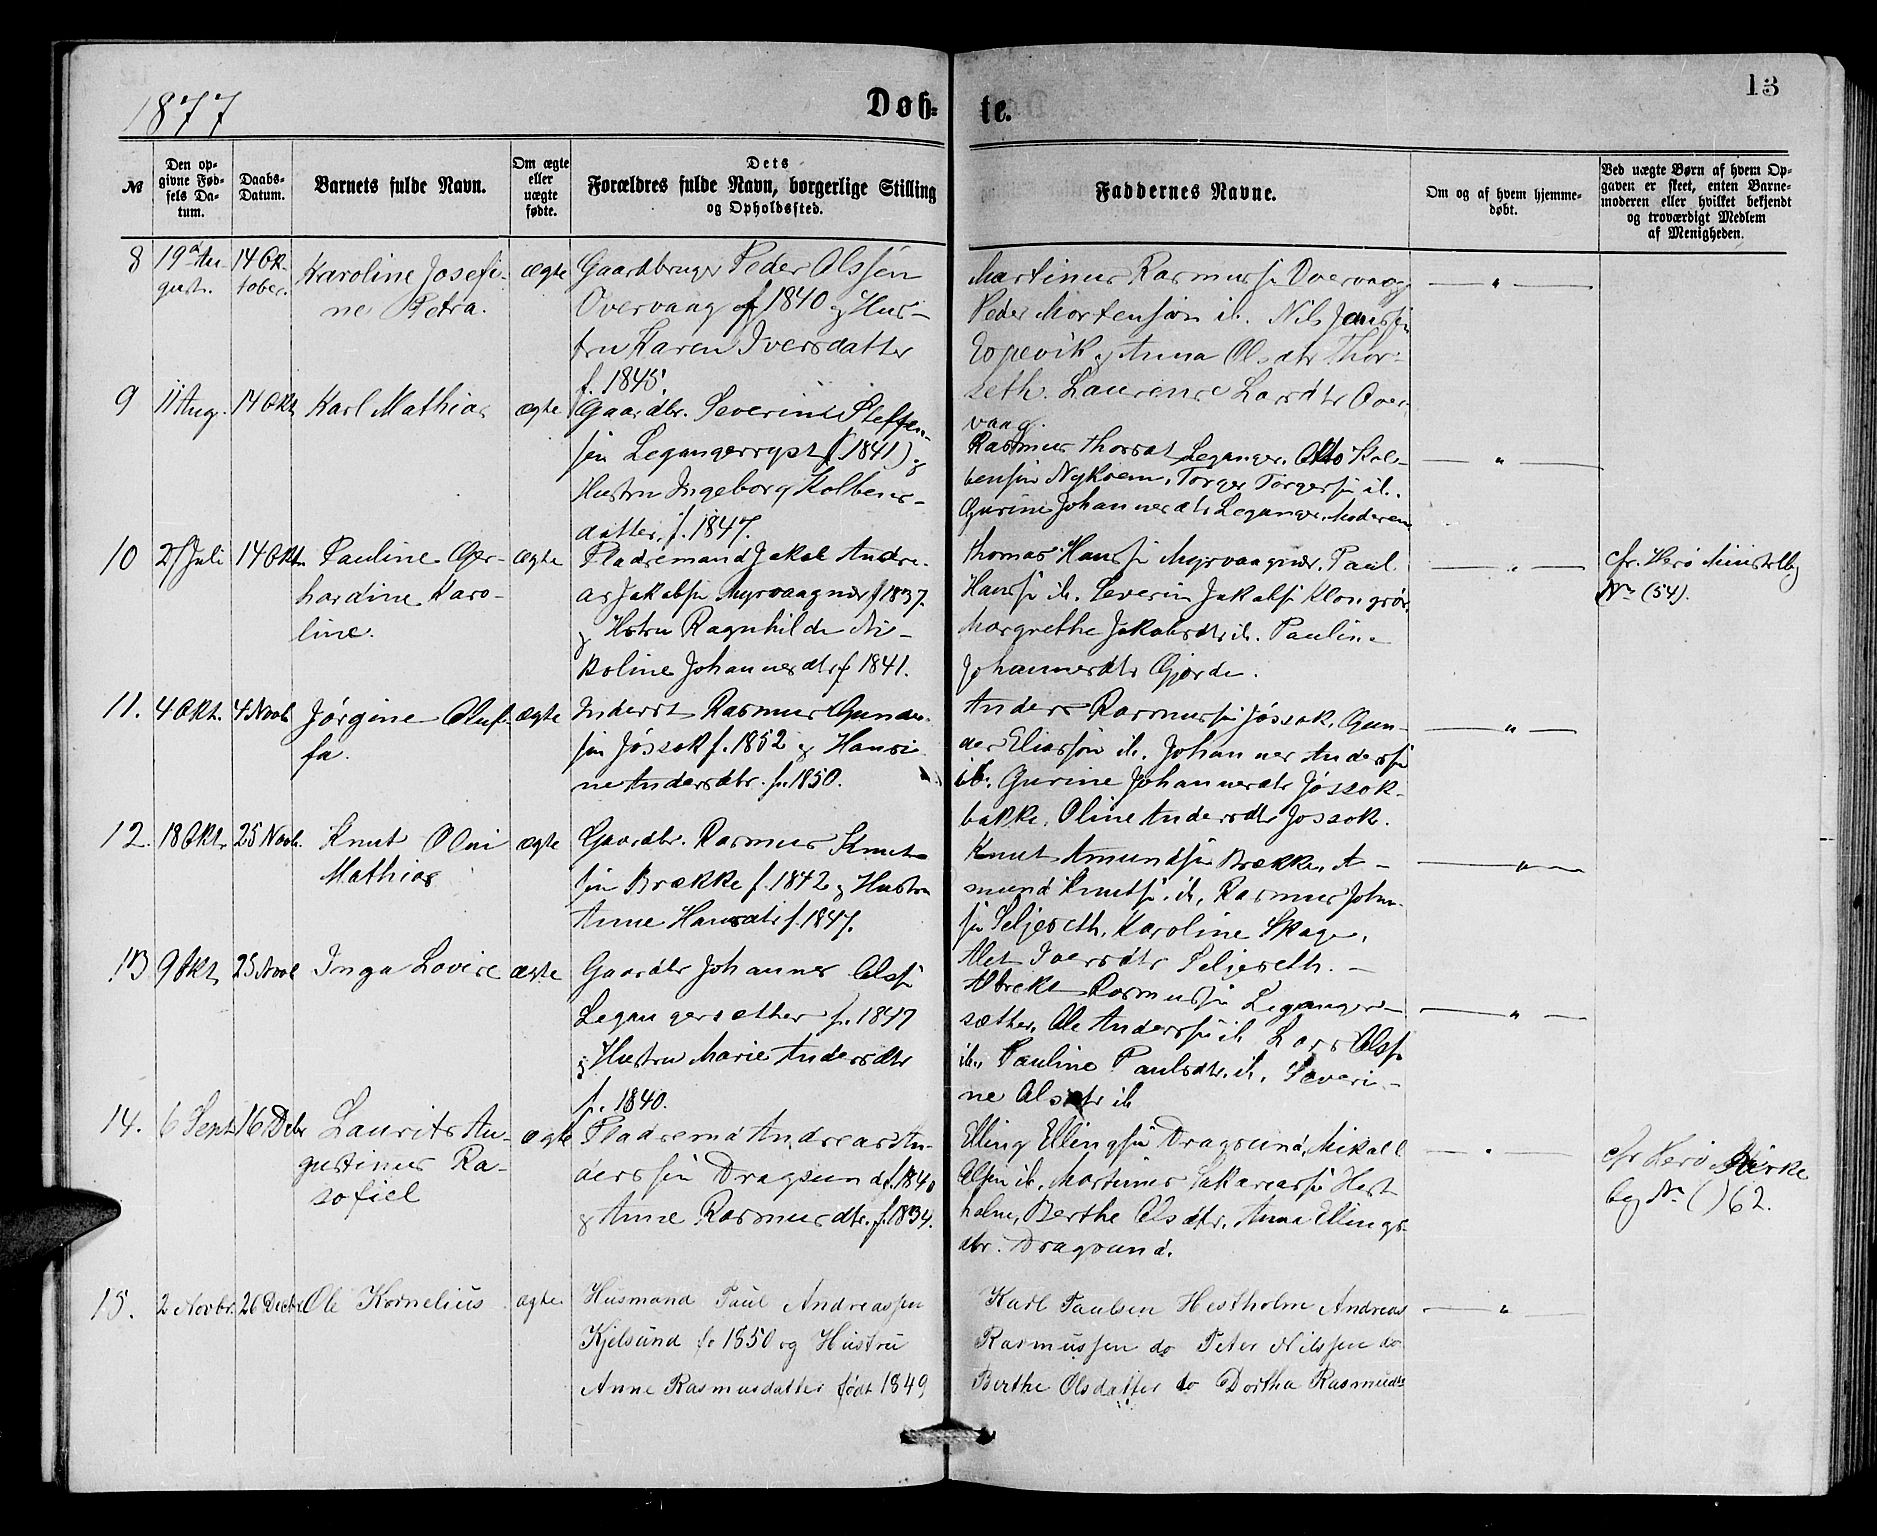 1877
Døb-
te.
13
№
Den op-
givne Fød-
sels Da-
tum.
Daabs-
Datum.
Barnets fulde Navn.
Om ægte
eller
uægte
fødte.
Dets
Forældres fulde Navn, borgerlige Stilling
og Opholdssted.
Faddernes Navne.
Om og af hvem hjemme-
døbt.
Ved uægte Børn af hvem Op-
gaven er skeet, enten Barne-
moderen eller hvilket bekjendt
og troværdigt Medlem
af Menigheden.
8
19d Au-
gust.
14 Ok-
tober.
Karoline Josefi-
ne Petra.
ægte
Gaardbruger Peder Olssen
Overvaag f 1840 og Hus-
tru Karen Iversdatter
f. 1845.
Martinus Rasmuss. Overvaag
Peder Mortensøn ib. Nils
Eopevik og Anna Olsdtr Thor-
seth. Laurense Larsdtr Over-
vaag.
— " —
9
11 Aug.
14 Okt
Karl Mathias
ægte
Gaardbr. Severin Steffen-
søn Legangerrypst (f 1841) og
Hustru Ingeborg Kolbens-
datter, f. 1847.
Rasmus Thorsat Leganger. Otto Kol-
bensøn Nykrem, Torger Torgers. ib.
Gurine Johannesdtr Leganger. Moderen
— " —
10
27 Juli
14 Okt.
Pauline Ger-
hardine Karo-
line.
ægte
Pladsemand Jakob Andre-
as Jakobsn Myrvaagnæs f 1837.
og Hstru Ragnhilde Ni-
koline Johannesdtr f 1841.
Thomas Hanss. Myrvaagnæs. Paul
Hanss. ib. Severin Jakobs. Klongrør
Margrethe Jakobsdtr ib. Pauline
Johannesdtr Gjerde.
— " —
cfr. Herø Ministlbg
No (54).
11.
4 Okt.
4 Novb
Jørgine Oluf-
fa.
ægte
Inderst Rasmus Gunder-
søn Jøssok f. 1852 og Hansi-
ne Andersdtr. f. 1850.
Anders Rasmuss. Jøssok, Gun-
der Eliassøn ib. Johannes Anderss.
ib. Gurine Johannesdtr Jøssok-
bakke. Oline Andersdtr Jøssok.
— " —
12.
18 Okt.
25 Novb.
Knut Olai
Mathias
ægte
Gaardbr. Rasmus Knut-
søn Brække f. 1842 og Hustru
Anne Hansdtr f. 1847.
Knut Amunds. Brække, A-
mund Knuts. ib, Rasmus Johns-
s. Seljeseth, Karoline Skage,
Alet Iversdtr Seljeseth. —
— " —
13
9 Okt
25 Novb
Inga Lovise
ægte
Gaardbr Johannes Olss.
Legangersæther f. 1847
og Hustru Marie Andersdtr
f. 1840.
Albrekt Rasmuss. Leganger-
sæther, Ole Anderss. ib Lars Olss.
ib. Pauline Paulsdtr. ib. Severi-
ne Olsdtr ib
— " —
14.
6 Sept
16 Debr
Laurits Au-
gustinus Ra-
sofiel
ægte
Pladsemd Andreas An-
derssøn Dragsund f. 1840
og Anne Rasmusdtr. f. 1834.
Elling Ellings. Dragsund, Mikael
Olsen ib. Martinus Sakariass. Hest-
holm, Berthe Olsdtr. Anna Ellings-
dtr. Dragsund.
— " —
cfr Herø Kirke
bog No ( ) 62.
15.
2 Novbr.
26 Decbr.
Ole Kornelius
ægte
Husmand Paul Andreassen
Kjelsund f. 1850 og Hustru
Anne Rasmusdatter født 1849
Karl Paulsen Hestholm Andreas
Rasmussen do Peter Nilssen do
Berthe Olsdatter do Dortha Rasmusdtr
— " —